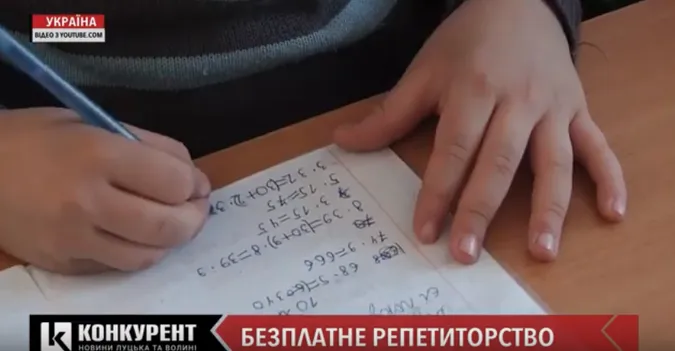 УКРАЇНА
ВІДЕО З YOUTUBE.COM
3 · 32=(30+2)·3
5 · 15=75
3 · 15=45
8 · 39=(30+9)·8=39·9
74 · 9=666
68 · 5=
340
10
КОНКУРЕНТ
НОВИНИ ЛУЦЬКА ТА ВОЛИНІ
БЕЗПЛАТНЕ РЕПЕТИТОРСТВО